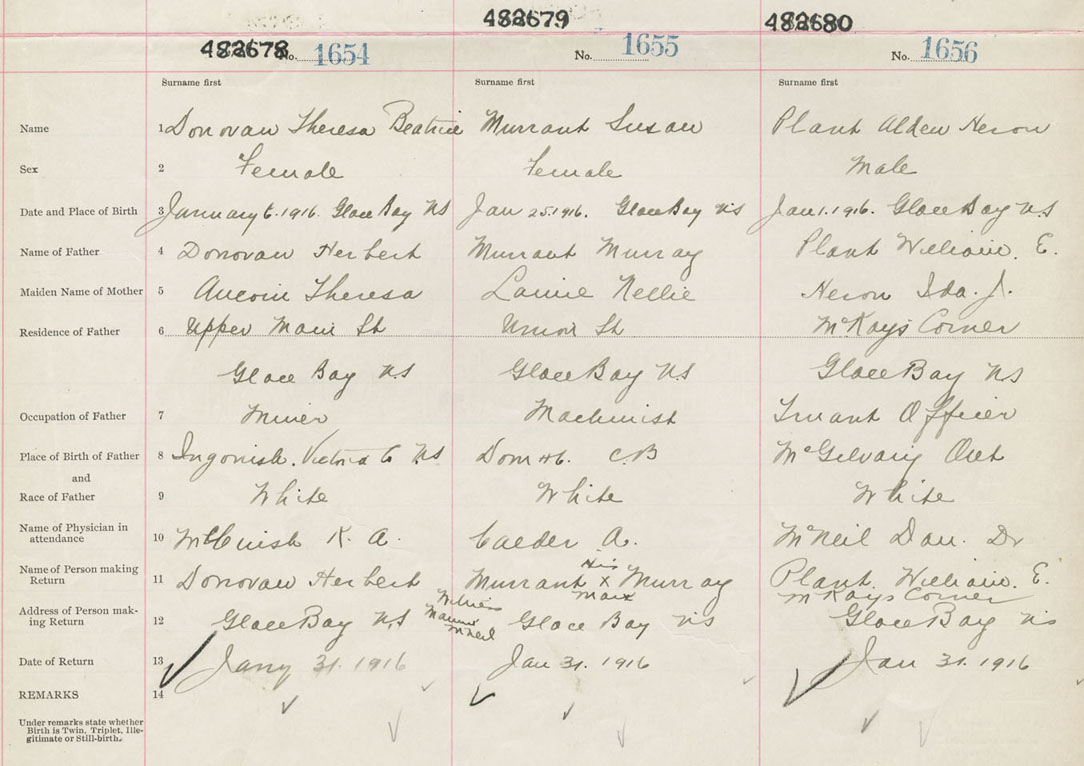 482678 482679 482680
No. 1654 No. 1655 No. 1656
Surname first Surname first Surname first
Name 1 Donovan Theresa Beatrice Murrant Susan Plant Alden Heron
Sex 2 Female Female Male
Date and Place of Birth 3 January 6. 1916. Glace Bay NS Jan 25. 1916. Glace Bay NS Jan 1. 1916. Glace Bay NS
Name of Father 4 Donovan Herbert Murrant Murray Plant William. E.
Maiden Name of Mother 5 Aucoin Theresa Nellie Heron Ida. J.
Residence of Father 6 Upper Main St Union St McKays Corner
Glace Bay NS Glace Bay NS Glace Bay NS
Occupation of Father 7 Miner Machinist Truant Officer
Place of Birth of Father 8 Ingonish. Victoria Co NS C.B McGilvary Ont
and
Race of Father 9 White White White
Name of Physician in
attendance 10 K. A. Calder A. McNeil Dan. Dr
Name of Person making
Return 11 Donovan Herbert Murrant His x Mark Murray Plant. William. E.
McKays Corner
Address of Person mak-
ing Return 12 Glace Bay NS Witness McNeil Glace Bay NS Glace Bay NS
Date of Return 13 Jany 31. 1916 Jan 31. 1916 Jan 31. 1916
REMARKS 14
Under remarks state whether
Birth is Twin, Triplet, Ille-
gitimate or Still-birth.